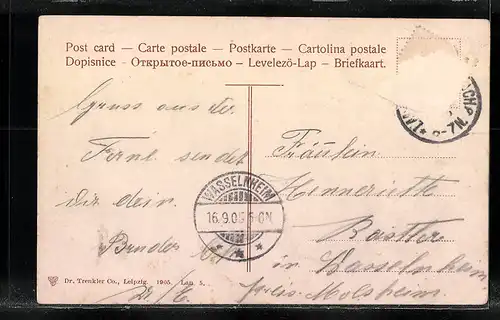 Post card — Carte postale — Postkarte — Cartolina postale
Dopisnice - Открытое-письмо — Levelező-Lap — Briefkaart.
Gruss aus der
Ferne sendet
dir dein
Bruder
Fräulein
Henneriette
Bastler
in Wasselnheim
Kreis Molsheim
WASSELNHEIM
16.9.09 6-7N
Dr. Trenkler Co., Leipzig. 1905. Lan. 5.